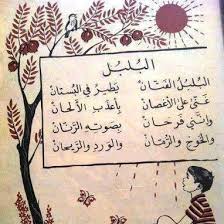 البُلبُلُ
البُلبُلُ الفَتّانْ يَطيرُ في البُستانْ
غَنّى عَلى الأغصانْ بِأعذَبِ الألحانْ
فَرحانْ بِصَوتِهِ الرَنّانْ
وَالخَوخِ وَالرُمّانْ وَالوَردِ وَالرَيحانْ